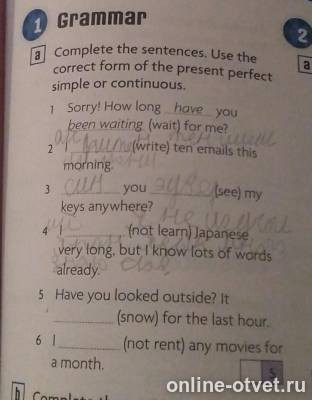 1 Grammar
2
a Complete the sentences. Use the
a
correct form of the present perfect
simple or continuous.
1 Sorry! How long have you
been waiting (wait) for me?
2 I (write) ten emails this
morning.
3 you (see) my
keys anywhere?
4 I (not learn) Japanese
very long, but I know lots of words
already.
5 Have you looked outside? It
(snow) for the last hour.
6 I (not rent) any movies for
a month.
5
b
online-otvet.ru